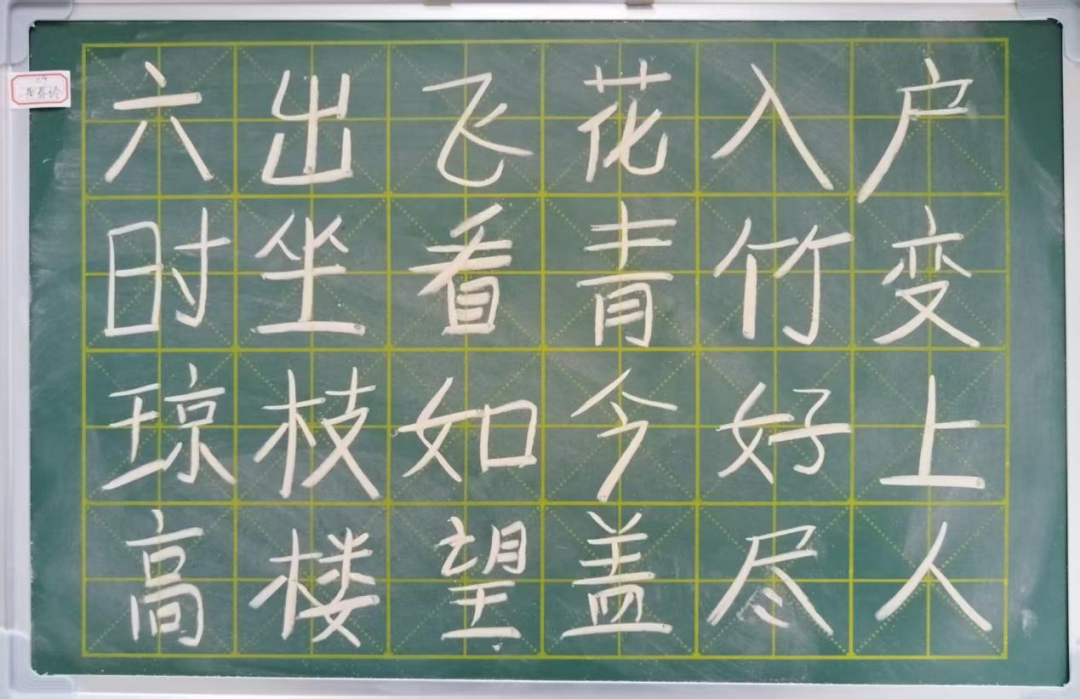 六出飞花入户
时坐看青竹变
琼枝如今好上
高楼望盖尽人